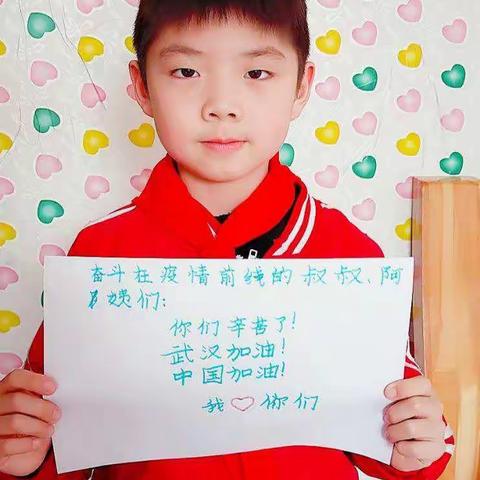 奋斗在疫情前线的叔叔、阿
姨们:
你们辛苦了!
武汉加油!
中国加油!
我♡你们